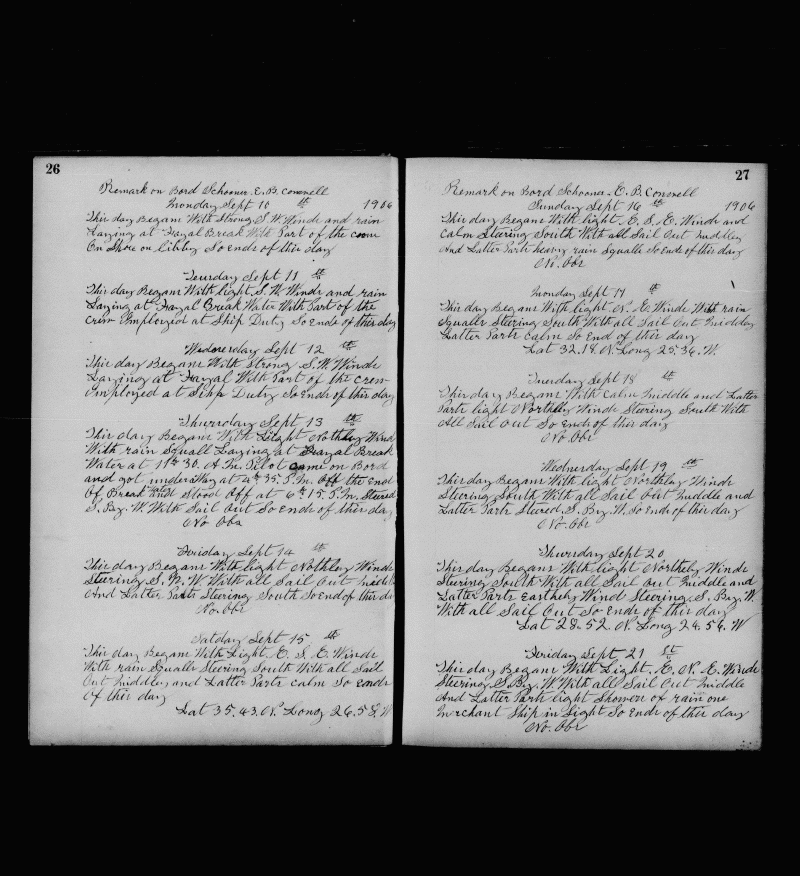 26
Remark on Bord Schooner. E. B. Conwell
Monday Sept 10 th 1906
This day Begans With Strong S. W. Winds and rain
Laying at Fayal Break With Part of the crew
On Shore on libbty So ends of this day
Teusday Sept 11 th
This day Begans With light S. W. Winds and rain
Laying at Fayal Break Water With Part of the
crew Employed at Ship Duty So Ends of this day
Wednesday Sept 12 th
This day Begans With Strong S. W. Winds
Laying at Fayal With Part of the crew
Employed at Ship Duty So Ends of this day
Thursday Sept 13 th
This day Began With Light Notheley Wind
With rain Squall Laying at Fayal Break
Water at 11 hr 30. A. M. Pilot came on Bord
and got underWay at 4 hr 35. P. M. Off the End
Of Break Water and Stood Off at 6 hr 15. P. M. Steered
S. By. W. With Sail Out So Ends of this day
No Obs
Friday Sept 14 th
This day Begans With light Notheley Winds
Steering S. By. W. With all Sail Out
And Latter Parts Steering South So End of this
No. Obs
Satday Sept 15 th
This day Begans With Light. E. S. E. Winds
With rain Squalls Steering South With all Sail
Out Middley and Latter Parts calm So ends
Of this day
Lat 35.43. N. Long 26.58. W
27
Remark on Bord Schooner. E. B. Conwell
Sunday Sept 16 th 1906
This day Begans With light. E. S. E. Winds and
calm Steering South With all Sail Out Middley
And Latter Parts heavy rain Squalls So Ends of this day
No. Obs
Monday Sept 17 th
This day Begans With light. N. E. Winds With rain
Squalls Steering South With all Sail Out Middley
Latter Parts calm So End of this day
Lat 32.18. N. Long 25.36. W.
Tuesday Sept 18 th
This day Begans With calm Middle and Latter
Parts light Northley Winds Steering South With
All Sail Out So Ends of this day
No Obs
Wednesday Sept 19 th
This day Begans With light Northley Winds
Steering South With all Sail Out Middle and
Latter Parts Steered. S. By. W. So Ends of this day
No. Obs
Thursday Sept 20
This day Begans With light Northely Winds
Steering South With all Sail Out Middle and
Latter Parts Eastheley Wind Steering. S. By. W.
With all Sail Out So Ends of this day
Lat 28.52. N. Long 24.56. W
Friday Sept. 21 st
This day Begans With Light. E. N. E. Winds
Steering. S. By. W. With all Sail Out Middle
And Latter Parts light Showers of rain one
Merchant Ship in Sight So Ends of this day
No. Obs